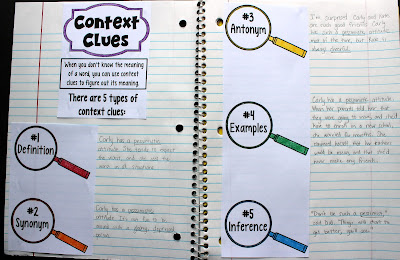 Context
Clues
When you don't know the meaning
of a word, you can use context
clues to figure out its meaning.
There are 5 types of
context clues:
#1
Definition
Carly has a pessimistic
attitude. She tends to expect
the worst, and see all the
worst in all situations.
#2
Synonym
Carly has a pessimistic
attitude. It's not fun to be
around such a gloomy, depressed
person.
#3
Antonym
I'm surprised Carly and Kate
are such good friends. Carly
has such a pessimistic attitude
most of the time, but Kate is
always cheerful.
#4
Examples
Carly has a pessimistic attitude.
When her parents told her that
they were going to move, and she'd
have to enroll in a new school,
she worried for months. She
would be mean, and that she'd
never make any friends.
#5
Inference
"Don't be such a pessimist,"
said Bob. "Things will start to
get better, you'll see."